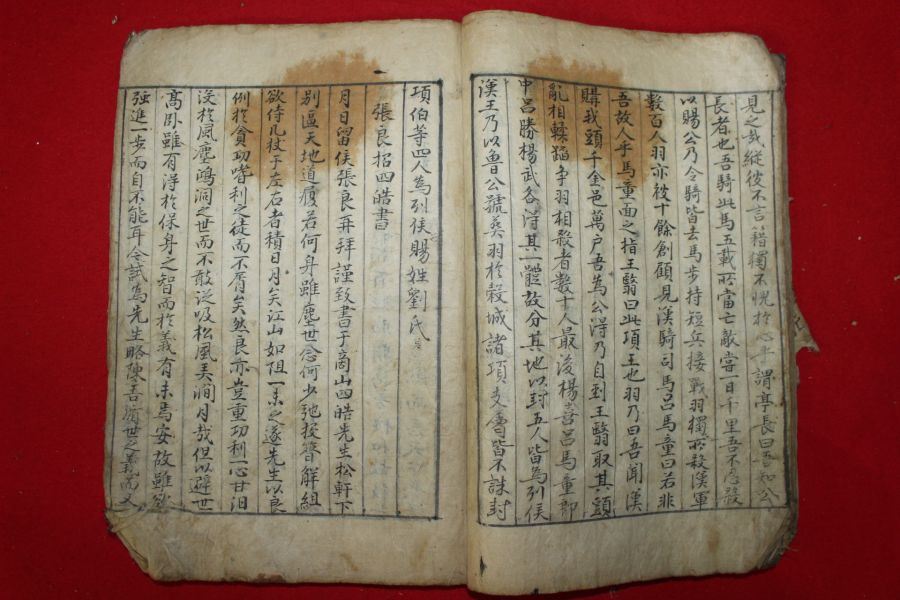 見之哉縱彼不言籍獨不愧於心乎謂亭長曰吾知公
長者也吾騎此馬五載所當亡敵嘗一日千里吾不忍殺
以賜公乃令騎皆去馬步持短兵接戰羽獨所殺漢軍
數百人羽亦被十餘創顧見漢騎司馬呂馬童曰若非
吾故人乎馬童面之指王翳曰此項王也羽乃曰吾聞漢
購我頭千金邑萬户吾為公得乃自刎王翳取其頭
亂相蹂蹈争羽相殺者數十人最後楊喜呂馬童郎
中呂勝楊武各得其一體故分其地以封五人皆為列侯
漢王乃以魯公號葬羽於穀城諸項支屬皆不誅封
項伯等四人為列侯賜姓劉氏
張良招四皓書
月日留侯張良再拜謹致書于商山四皓先生松軒下
別區天地道履若何身雖塵世念何少弛投簪解組
欲侍几杖于左右者積日月矣江山如阻一未之遂先生以良
例於貪功嗜利之徒而不屑矣然良亦豈重功利一心甘汩
沒於風塵鴻洞之世而不敢泛吸松風美澗月哉但以避世
高卧雖有得於保身之智而於義有未焉安故雖欲
強進一步而自不能耳今試為先生略陳吾濟世之義而又